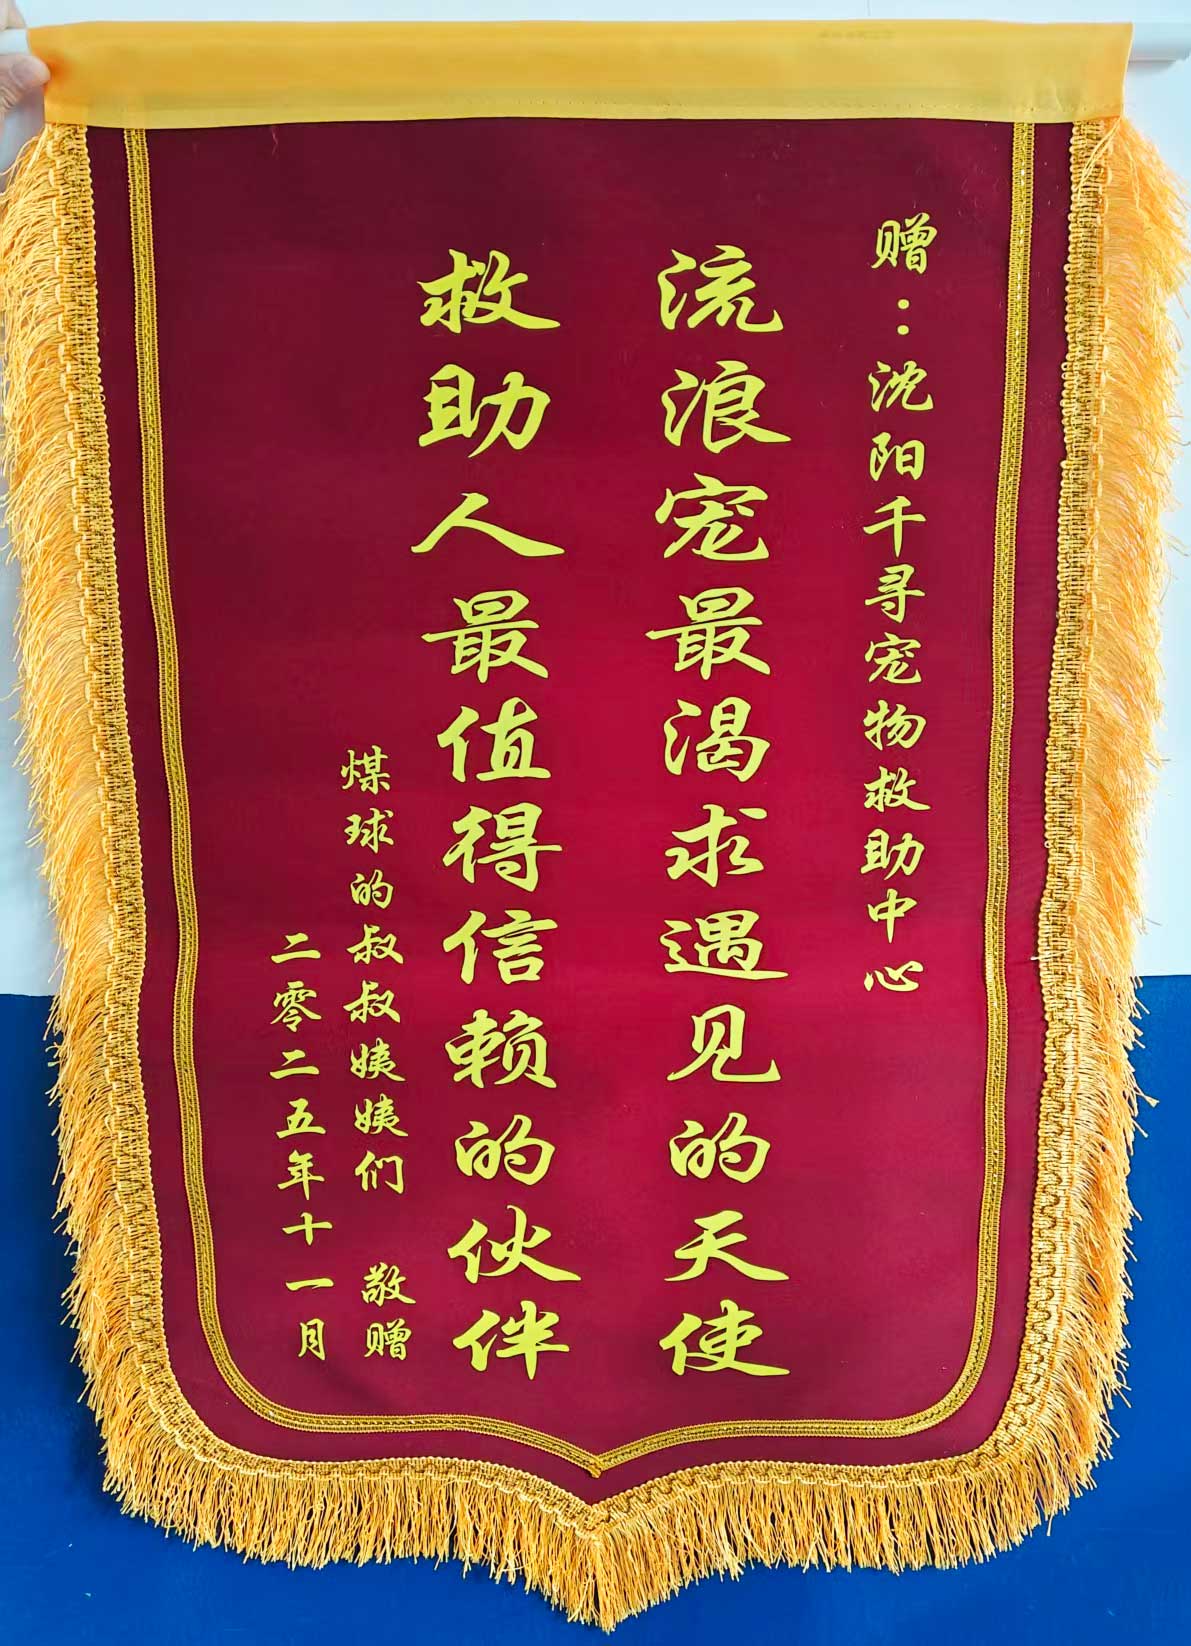 赠：沈阳千寻宠物救助中心
流浪宠最渴求遇见的天使
救助人最值得信赖的伙伴
煤球的叔叔姨姨们 敬赠
二零二五年十一月